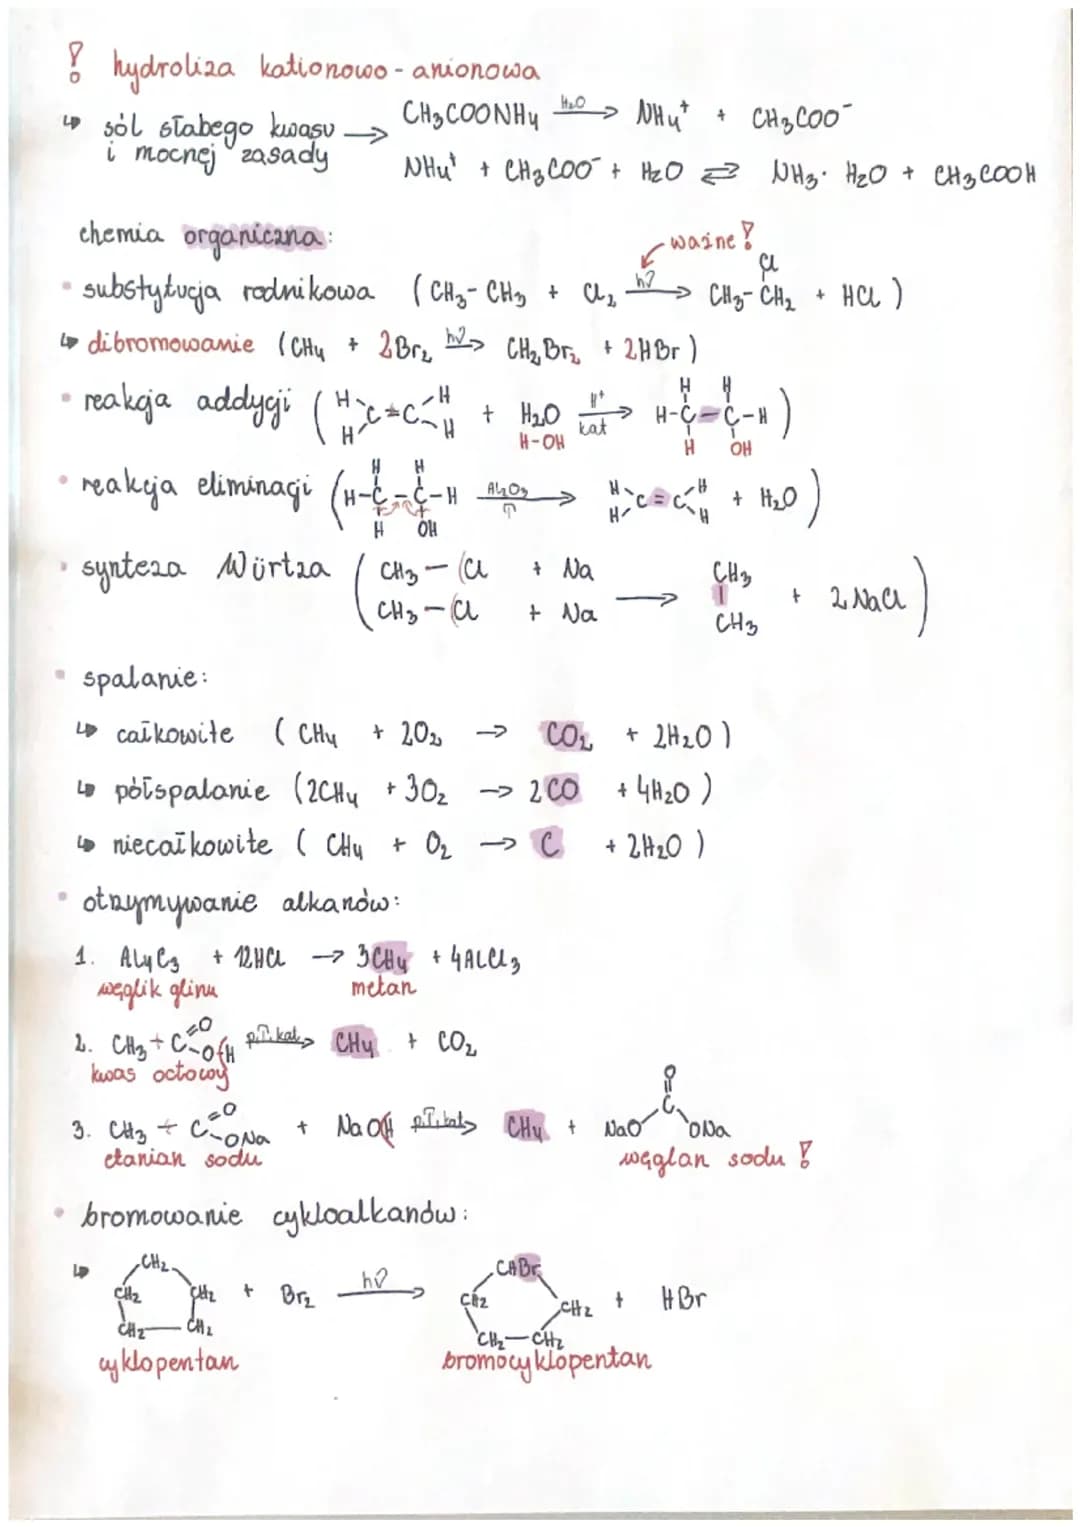 ! hydroliza kationowo-anionowa
↳ sól słabego kwasu i mocnej zasady →
CH₃COONH₄ —H₂O→ NH₄⁺ + CH₃COO⁻
NH₄⁺ + CH₃COO⁻ + H₂O ⇄ NH₃·H₂O + CH₃COOH
chemia organiczna:
ważne!
• substytucja rodnikowa (CH₃-CH₃ + Cl₂ —hν→ CH₃-CH₂Cl + HCl)
↳ dibromowanie (CH₄ + 2Br₂ —hν→ CH₂Br₂ + 2HBr)
• reakcja addycji (H H C=C H H + H₂O —H⁺ kat→ H-C-C-H H H H OH)
H-OH
• reakcja eliminacji (H-C-C-H H H H OH —Al₂O₃ T→ H H C=C H H + H₂O)
• synteza Würtza (CH₃-Cl + Na
CH₃-Cl + Na → CH₃-CH₃ + 2NaCl)
• spalanie:
↳ całkowite (CH₄ + 2O₂ → CO₂ + 2H₂O)
↳ półspalanie (2CH₄ + 3O₂ → 2CO + 4H₂O)
↳ niecałkowite (CH₄ + O₂ → C + 2H₂O)
• otrzymywanie alkanów:
1. Al₄C₃ + 12HCl → 3CH₄ + 4AlCl₃
węglik glinu metan
2. CH₃-C=O-OH —p,T,kat→ CH₄ + CO₂
kwas octowy
3. CH₃-C=O-ONa + NaOH —p,T,kat→ CH₄ + NaO-C=O-ONa
etanian sodu węglan sodu!
• bromowanie cykloalkanów:
↳ CH₂ CH₂ CH₂ CH₂-CH₂ + Br₂ —hν→ CHBr CH₂ CH₂ CH₂-CH₂ + HBr
cyklopentan bromocyklopentan